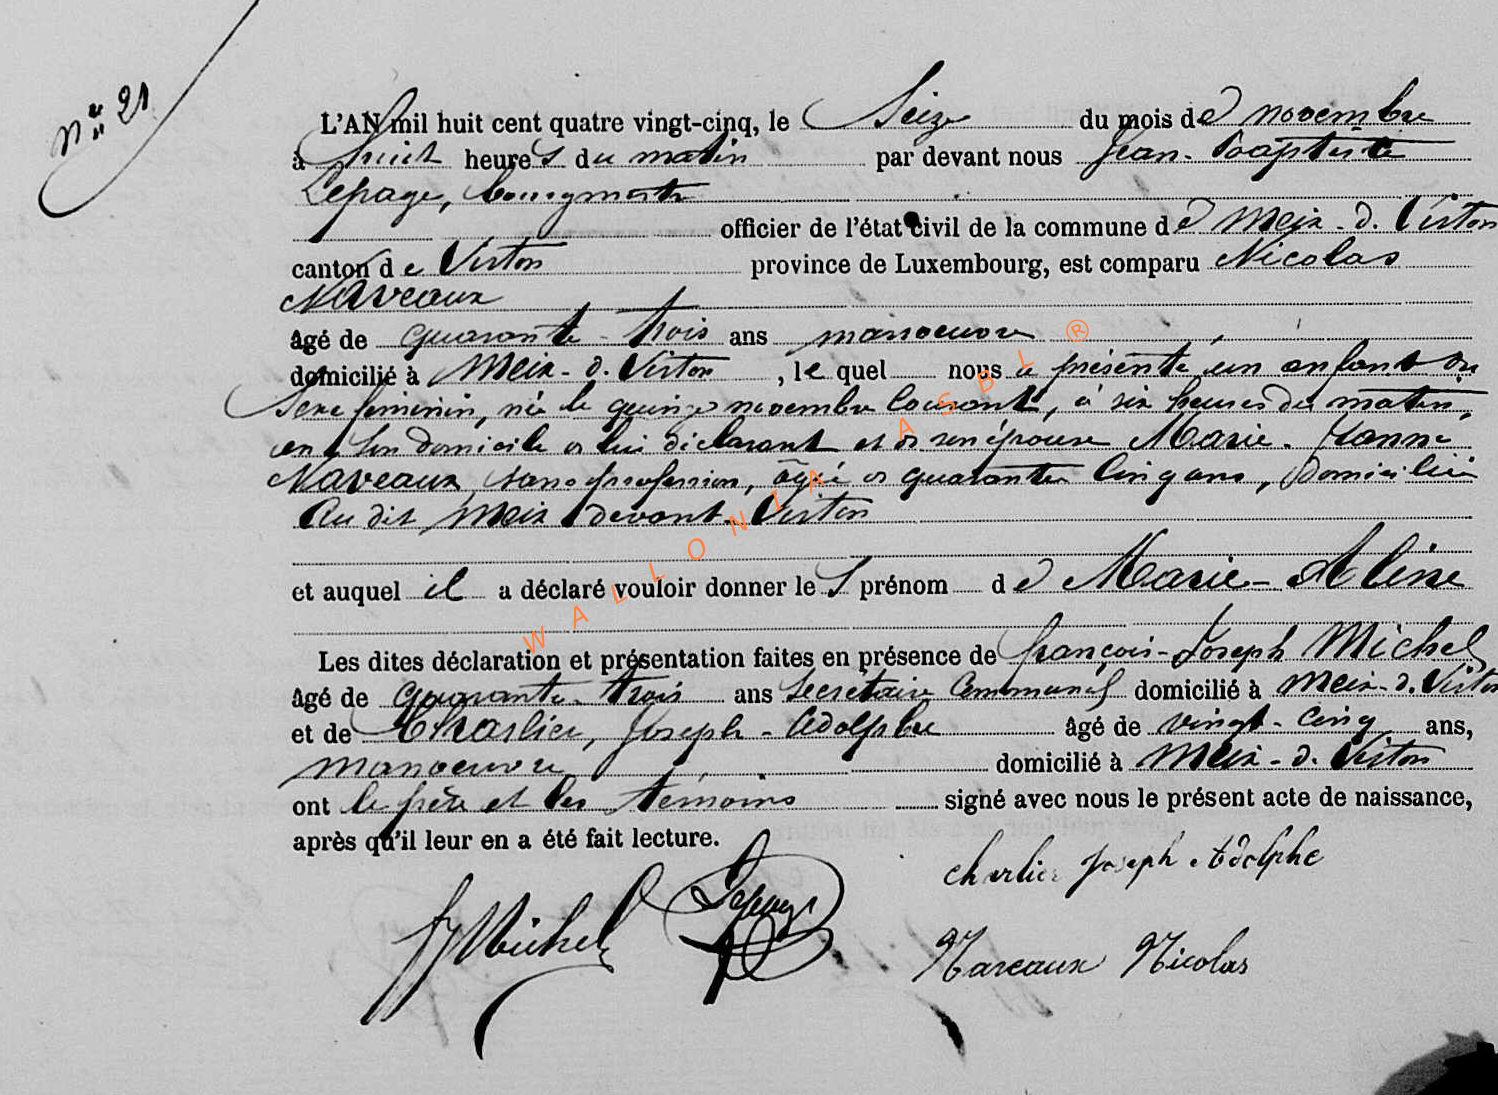 Nº 21
L'AN mil huit cent quatre vingt-cinq, le Seize du mois de novembre
à huit heures du matin par devant nous Jean-Baptiste
Lepage, bourgmestre
officier de l'état civil de la commune de Meix-d. Virton
canton de Virton province de Luxembourg, est comparu Nicolas
Naveaux
âgé de quarante-trois ans manoeuvre
domicilié à Meix-d. Virton, lequel nous a présenté un enfant du
Sexe féminin, née le quinze novembre Courant, à six heures du matin,
en son domicile de lui déclarant et de son épouse Marie-Jeanne
Naveaux, sans profession, âgée de quarante Cinq ans, Domiciliée
Au dit Meix devant-Virton
et auquel il a déclaré vouloir donner les prénom de Marie-Aline
Les dites déclaration et présentation faites en présence de françois-Joseph Michel
âgé de quarante-trois ans Secrétaire Communal domicilié à Meix-d. Virton
et de Charlier, Joseph-Adolphe âgé de vingt-cinq ans,
manoeuvre domicilié à Meix-d. Virton
ont le père et les témoins signé avec nous le présent acte de naissance,
après qu'il leur en a été fait lecture.
charlier Joseph Adolphe
fJMichel Lepage
Naveaux Nicolas
WALLONIA ASBL ®